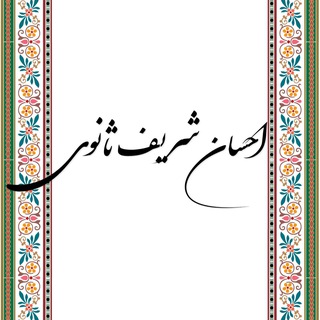 احسان شریف ثانوی